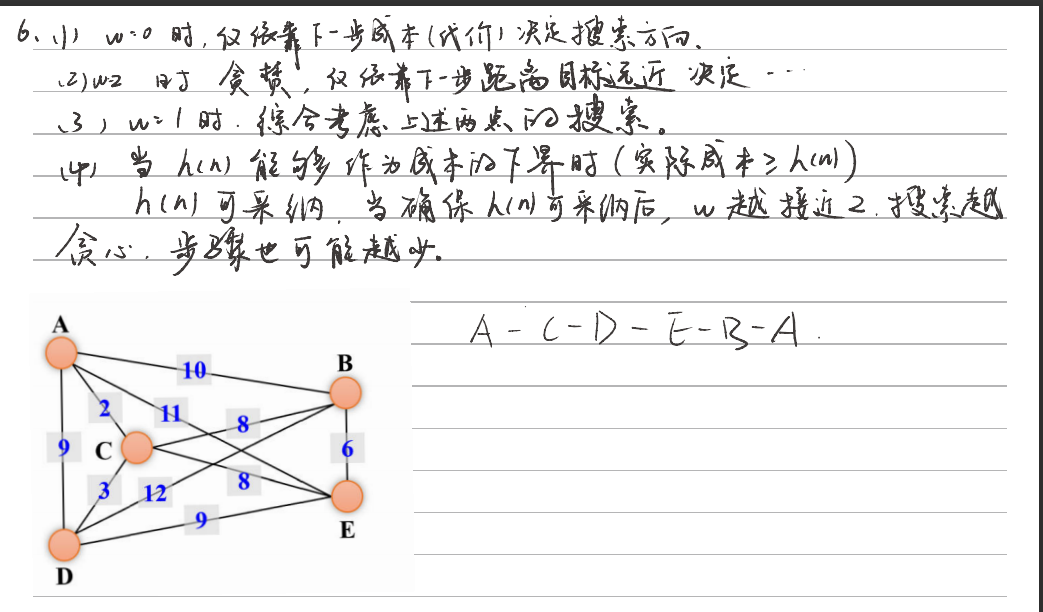 6、(1) w=0 时，仅依靠下一步成本(代价)决定搜索方向、
(2) w=2 时 贪婪，仅依靠下一步距离目标远近 决定 …
(3) w=1 时. 综合考虑上述两点的搜索。
(4) 当 h(n) 能够作为成本的下界时 (实际成本 ≥ h(n))
h(n) 可采纳. 当确保 h(n) 可采纳后, w 越接近2. 搜索越
贪心. 步骤也可能越少。
A - C - D - E - B - A .
A
10
B
2
11
8
9
C
6
3
12
8
9
E
D